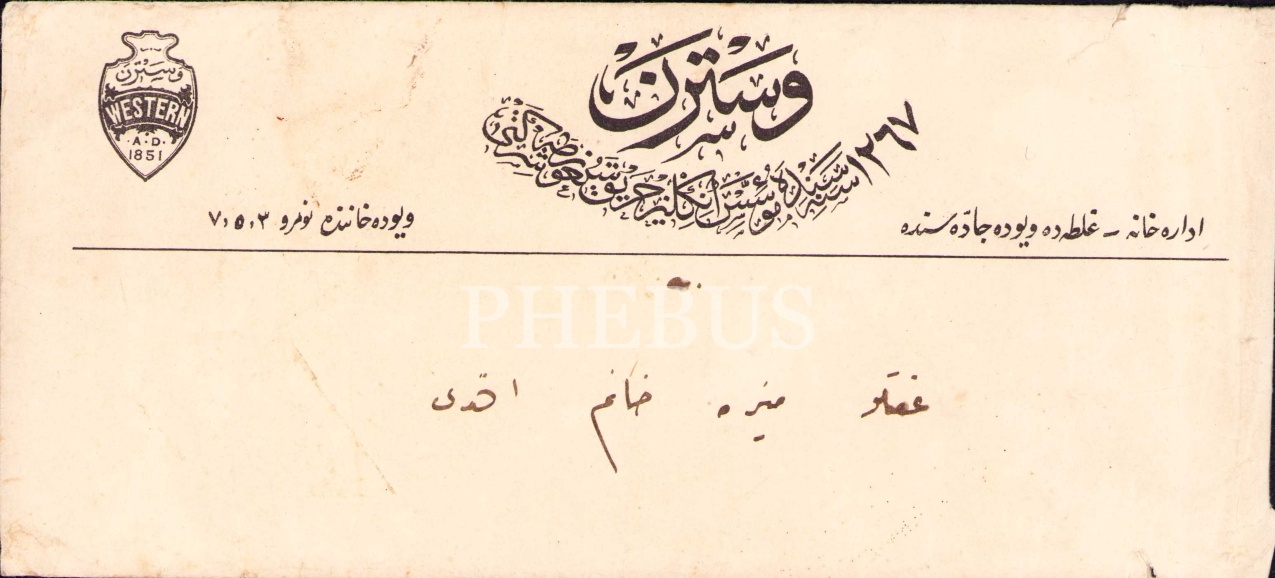 وسترن
WESTERN
A·D·
1851
وسترن
١٢٦٧ سنه سنده مؤسس انكليز حريق سيغورطه شركتى
اداره خانه ـ غلطه ده ويوده جاده سنده
ويوده خاننده نومرو ٧،٥،٣
PHEBUS
عفتلو منيره خانم افندى